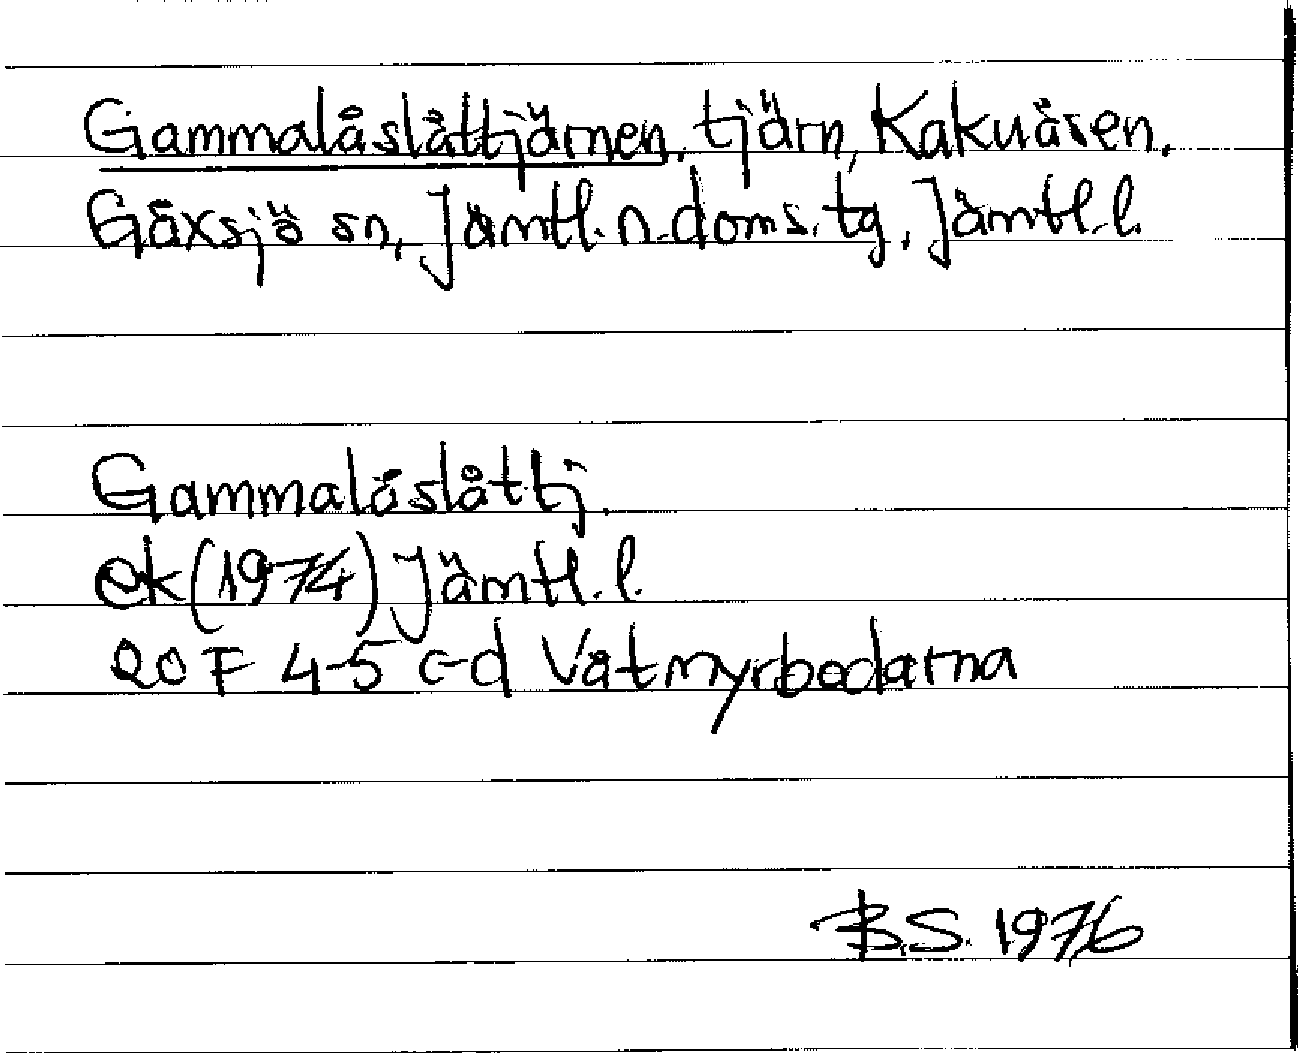 Gammalåslåttjärnen, tjärn, Kakuåsen.
Gåxsjö sn, Jämtl. n. doms. tg, Jämtl. l.
Gammalåslåttj.
ek (1974) Jämtl. l.
20 F 4-5 c-d Våtmyrbodarna
B.S. 1976